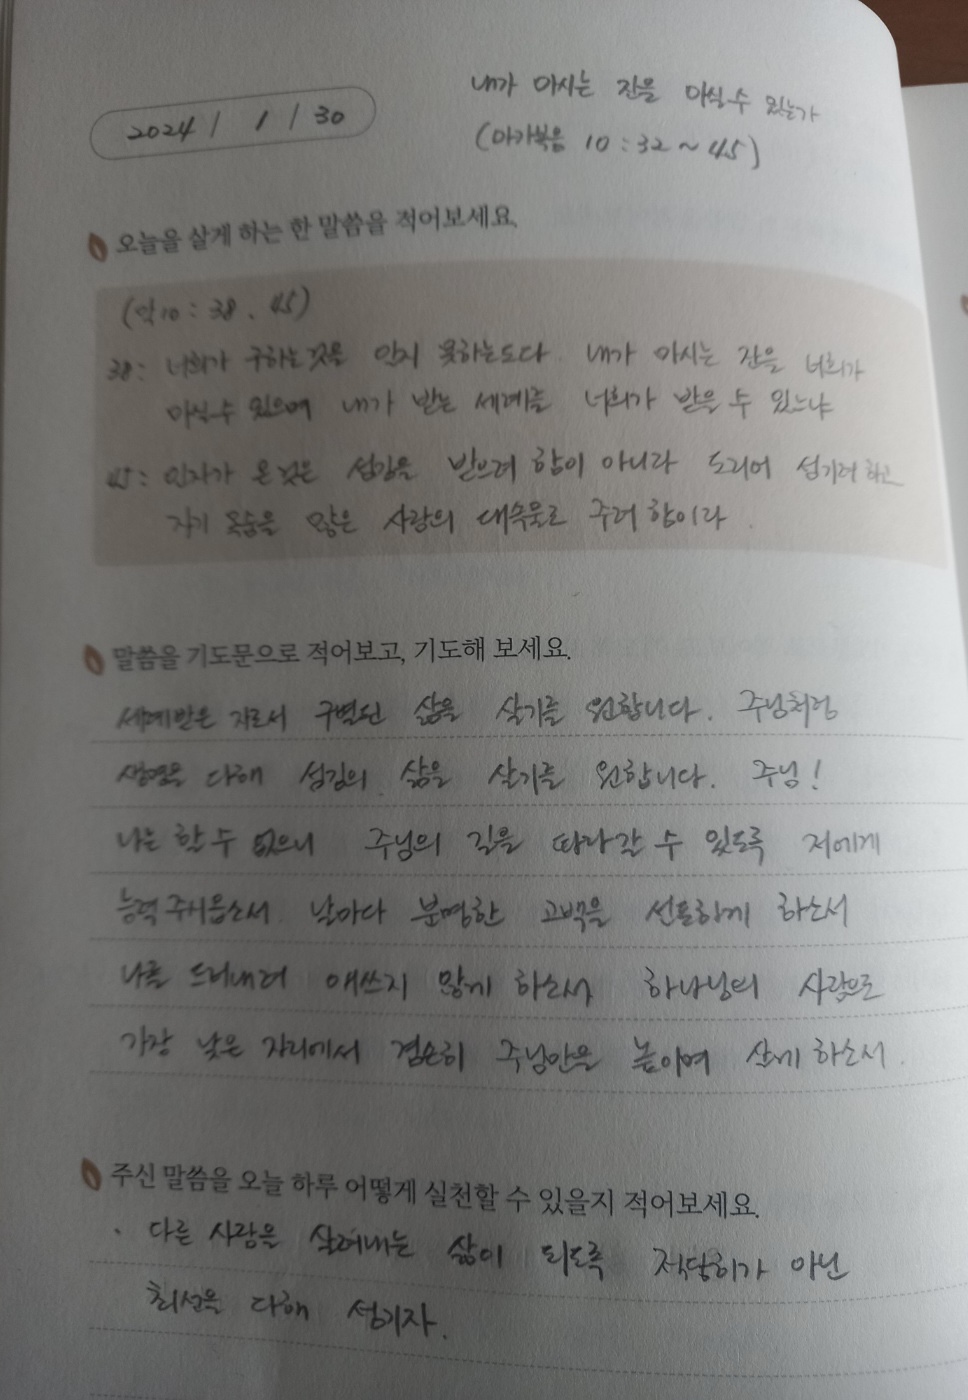 2024 / 1 / 30
내가 마시는 잔을 마실 수 있는가
(마가복음 10:32~45)
오늘을 살게 하는 한 말씀을 적어보세요.
(막10:38, 45)
38: 너희가 구하는 것을 알지 못하는도다 내가 마시는 잔을 너희가
마실 수 있으며 내가 받는 세례를 너희가 받을 수 있느냐
45: 인자가 온 것은 섬김을 받으려 함이 아니라 도리어 섬기려 하고
자기 목숨을 많은 사람의 대속물로 주려 함이라
말씀을 기도문으로 적어보고, 기도해 보세요.
세례받은 자로서 구별된 삶을 살기를 원합니다. 주님처럼
생명을 다해 섬김의 삶을 살기를 원합니다. 주님!
나는 할 수 없으니 주님의 길을 따라갈 수 있도록 저에게
능력 주시옵소서 날마다 분명한 고백을 선포하게 하소서
나를 드러내려 애쓰지 않게 하소서 하나님의 사람으로
가장 낮은 자리에서 겸손히 주님만을 높이며 살게 하소서.
주신 말씀을 오늘 하루 어떻게 실천할 수 있을지 적어보세요.
· 다른 사람을 살려내는 삶이 되도록 적당히가 아닌
최선을 다해 섬기자.